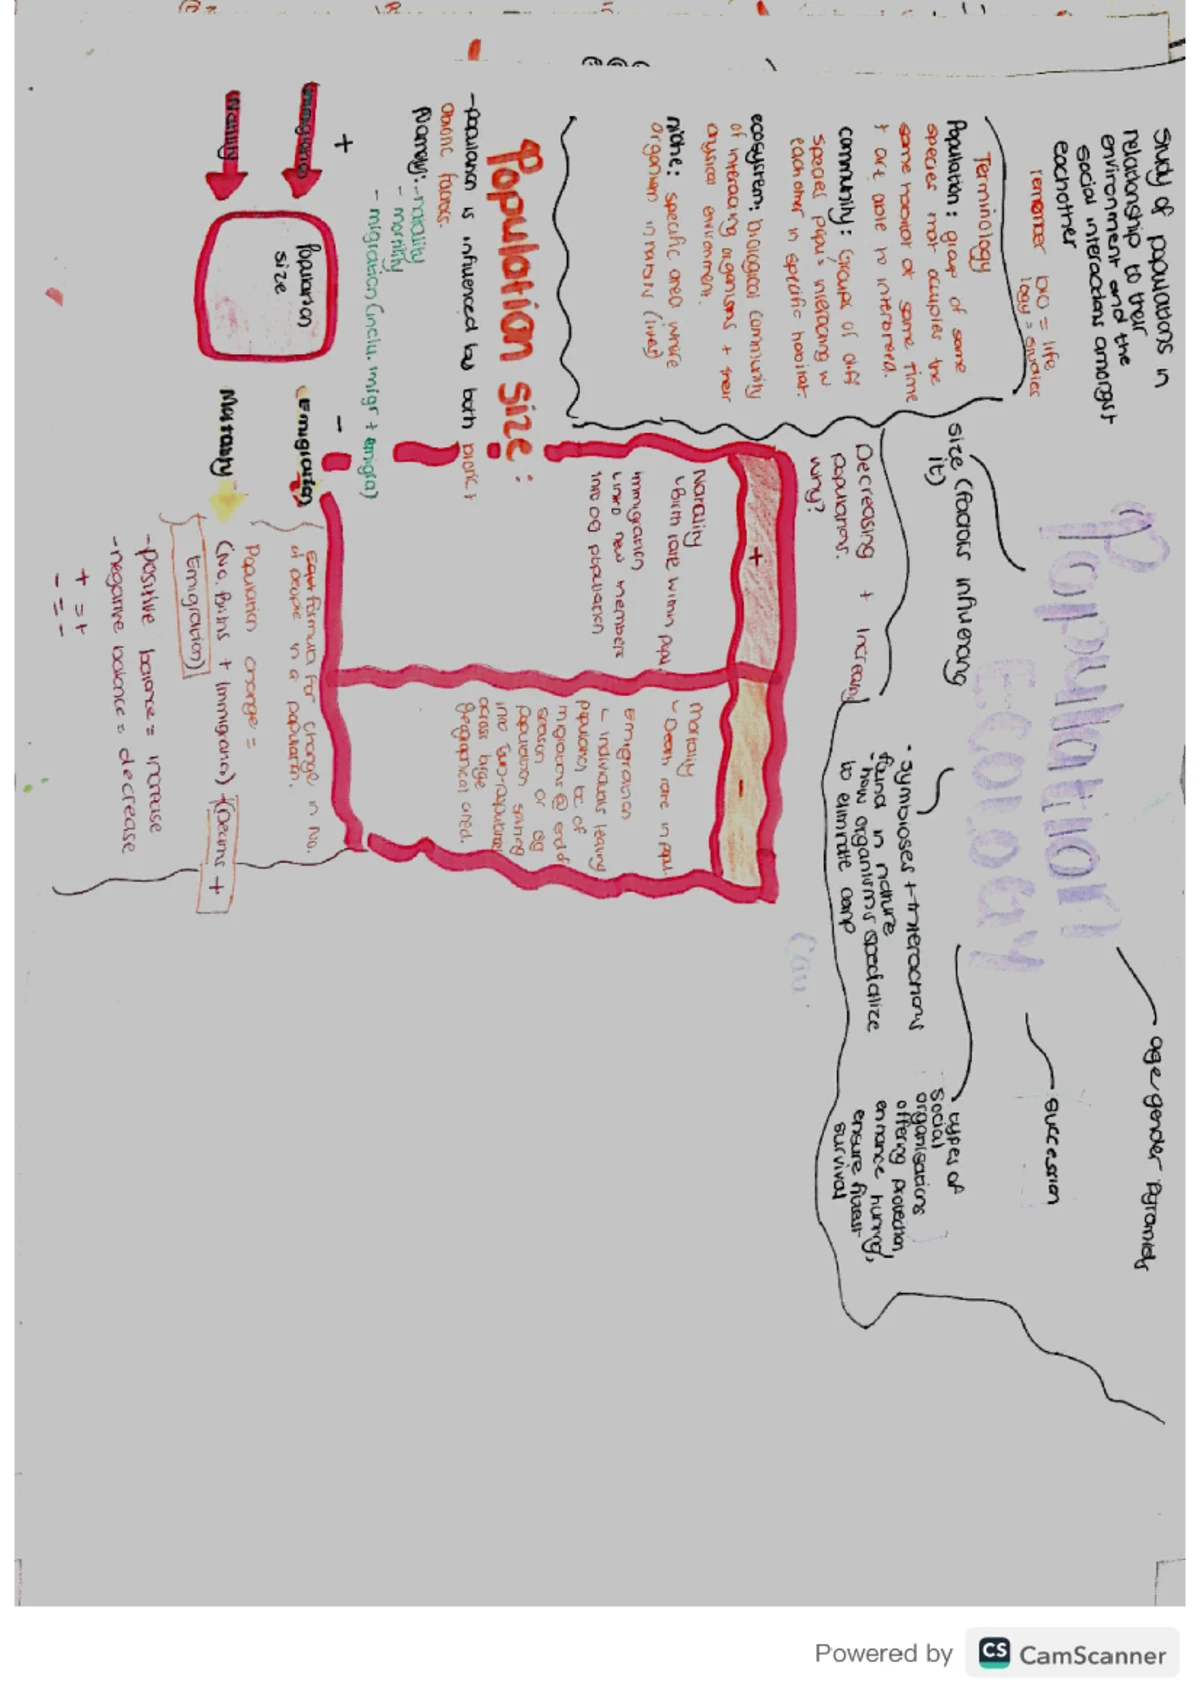 Population
Ecology
Study of populations in
relationship to their
environment and the
social interactions amongst
eachother
remember bio = life
logy = studies
size (factors influencing
it)
Decreasing + Increasing
populations.
why?
• symbioses + interactions
found in nature
- how organisms specialize
to eliminate comp
types of
social
organisations
offering protection,
enhance hunting,
ensure fittest
survival
succession
age/gender pyramids
Terminology
Population: group of same
species that occupies the
same habitat at same time
+ are able to interbreed.
community: Groups of diff
species popu's interacting w
eachother in specific habitat.
ecosystem: biological community
of interacting organisms + their
physical environment.
niche: specific area where
organism inhabits (lives)
Population size:
-population is influenced by both biotic +
abiotic factors.
Namely: -natality
- mortality
- migration (inclu. imigr + emigra)
+
-
Immigration
Natality
Population
size
Emigration
Mortality
+
Natality
Birth rate within popu
Immigration
into new members
into og population
-
Mortality
Death rate in popul.
Emigration
Individuals leaving
population bc of
migrations @ end of
season or og
population splitting
into sub-populations
across large
geographical area.
formula for change in No.
of people in a population.
Population change =
(No. Births + Immigrants) - (Deaths +
Emigration)
-positive balance = increase
-negative balance = decrease
+ = +
- = -
Powered by CS CamScanner